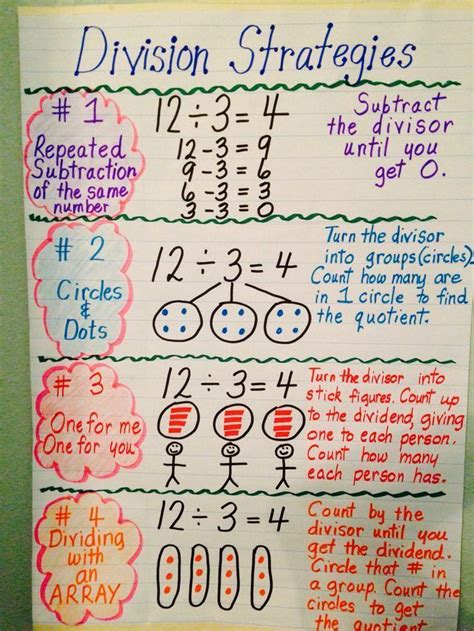 Division Strategies
# 1
Repeated
Subtraction
of the same
number
12÷3=4
12-3=9
9-3=6
6-3=3
3-3=0
Subtract
the divisor
until you
get 0.
# 2
Circles
&
Dots
12÷3=4
Turn the divisor
into groups(circles).
Count how many are
in 1 circle to find
the quotient.
# 3
One for me
One for you
12÷3=4
Turn the divisor into
stick figures. Count up
to the dividend, giving
one to each person.
Count how many
each person has.
# 4
Dividing
with
an
ARRAY
12÷3=4
Count by the
divisor until you
get the dividend.
Circle that # in
a group. Count the
circles to get
the quotient